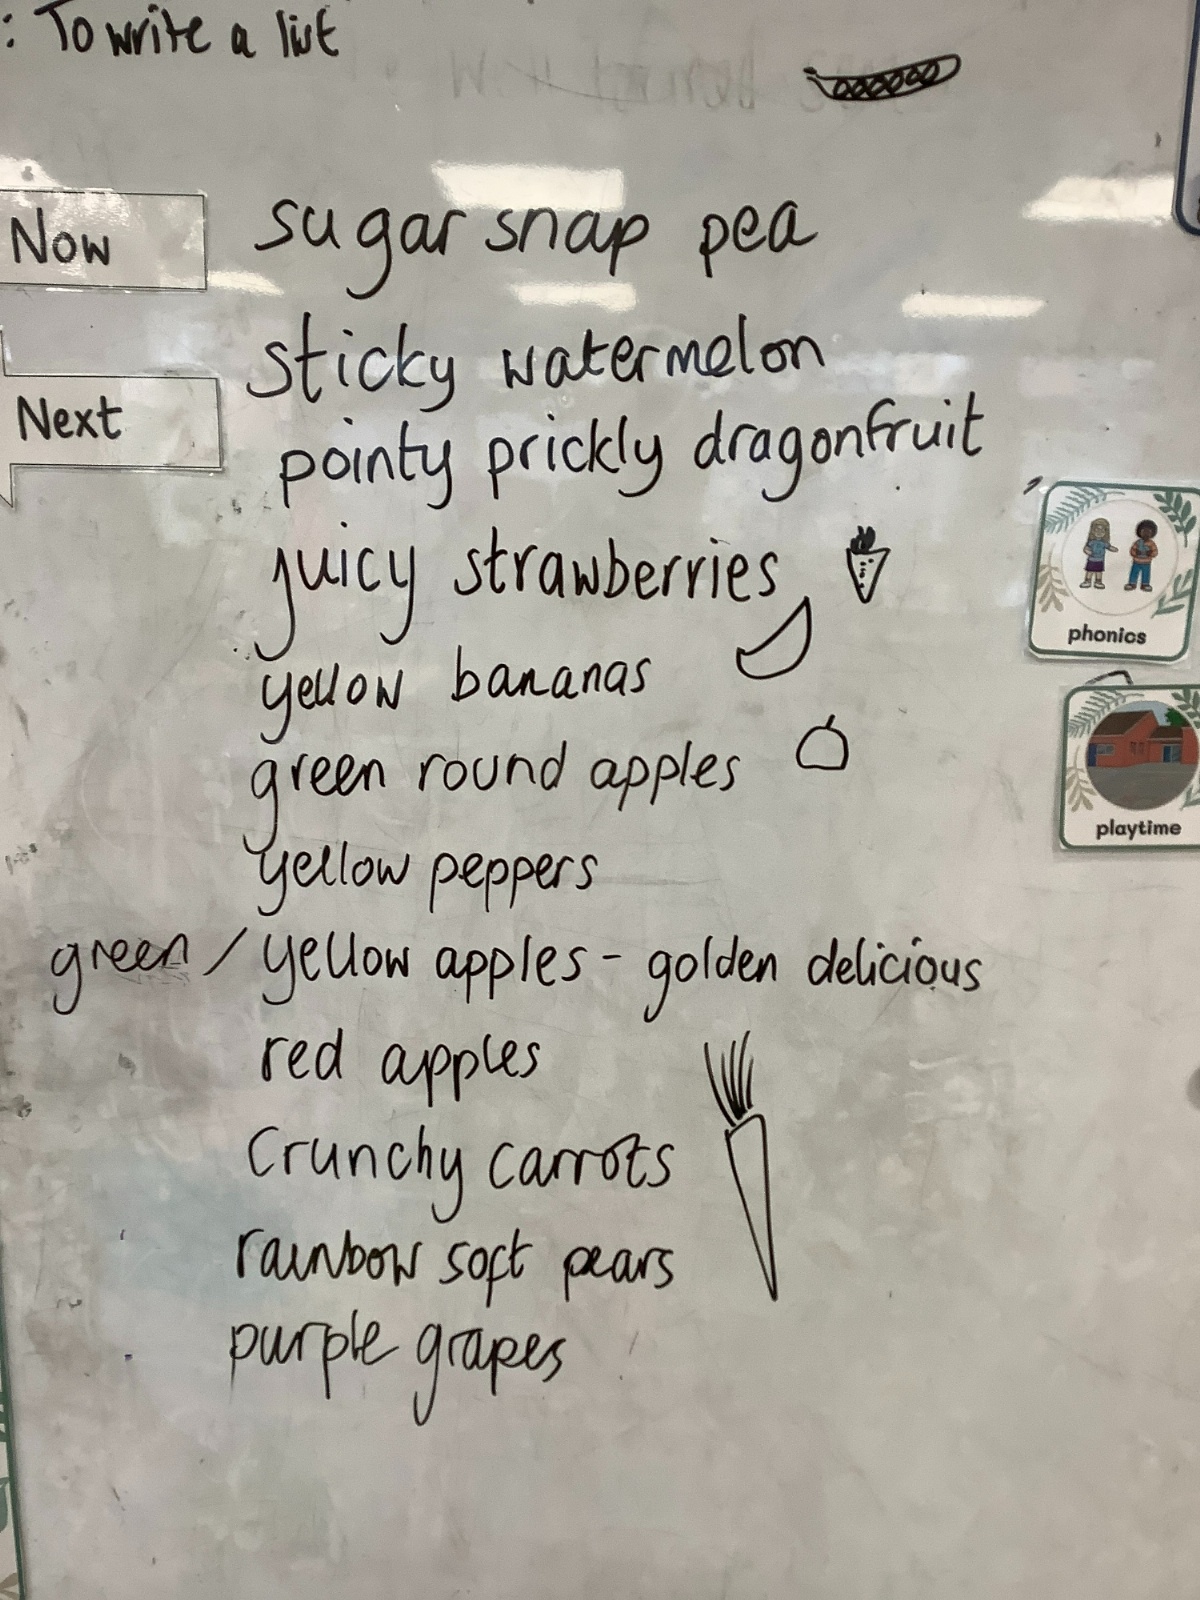 : To write a list
Now
sugar snap pea
sticky watermelon
Next
pointy prickly dragonfruit
juicy strawberries
phonics
yellow bananas
green round apples
playtime
yellow peppers
green / yellow apples - golden delicious
red apples
Crunchy carrots
rainbow soft pears
purple grapes